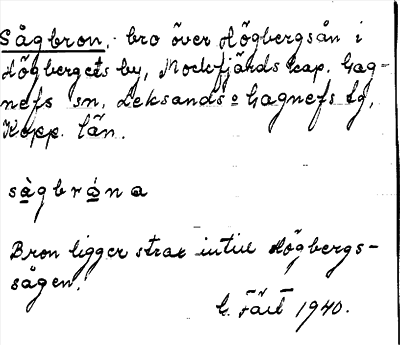 Sågbron, bro över Högbergsån i
Högbergets by, Mockfjärds kap. Gag-
nefs sn, Leksands o Gagnefs tg,
Kopp. län.
sågbròna
Bron ligger strax intill Högbergs-
sågen.
G. 1940.